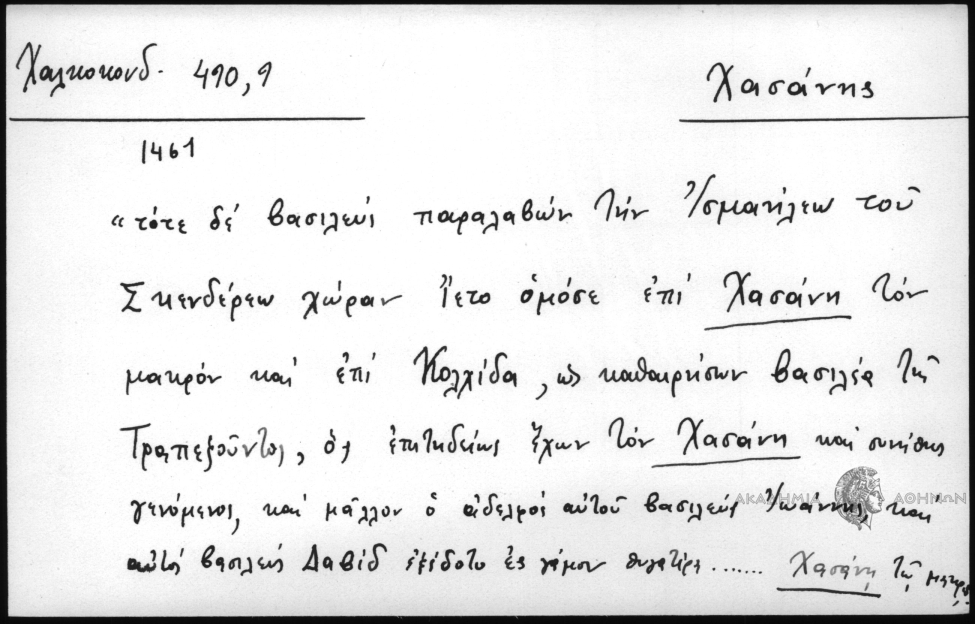 Χαλκοκονδ. 490,9
Χασάνης
1461
“τότε δέ βασιλεύς παραλαβών τήν Ἰσμαήλεω τοῦ
Σκενδέρεω χώραν ἵετο ὁμόσε ἐπί Χασάνη τόν
μακρόν καί ἐπί Κολχίδα, ὡς καθαιρήσων βασιλέα τῆς
Τραπεζοῦντος, ὅς ἐπιτηδείως ἔχων τόν Χασάνη καί συνήθης
γενόμενος, καί μᾶλλον ὁ ἀδελφός αὐτοῦ βασιλεύς Ἰωάννης, καί
αὐτός βασιλεύς Δαβίδ ἐξέδοτο ἐς γάμον θυγατέρα ....... Χασάνῃ τῷ μακρῷ
ΑΚΑΔΗΜΙΑ ΑΘΗΝΩΝ